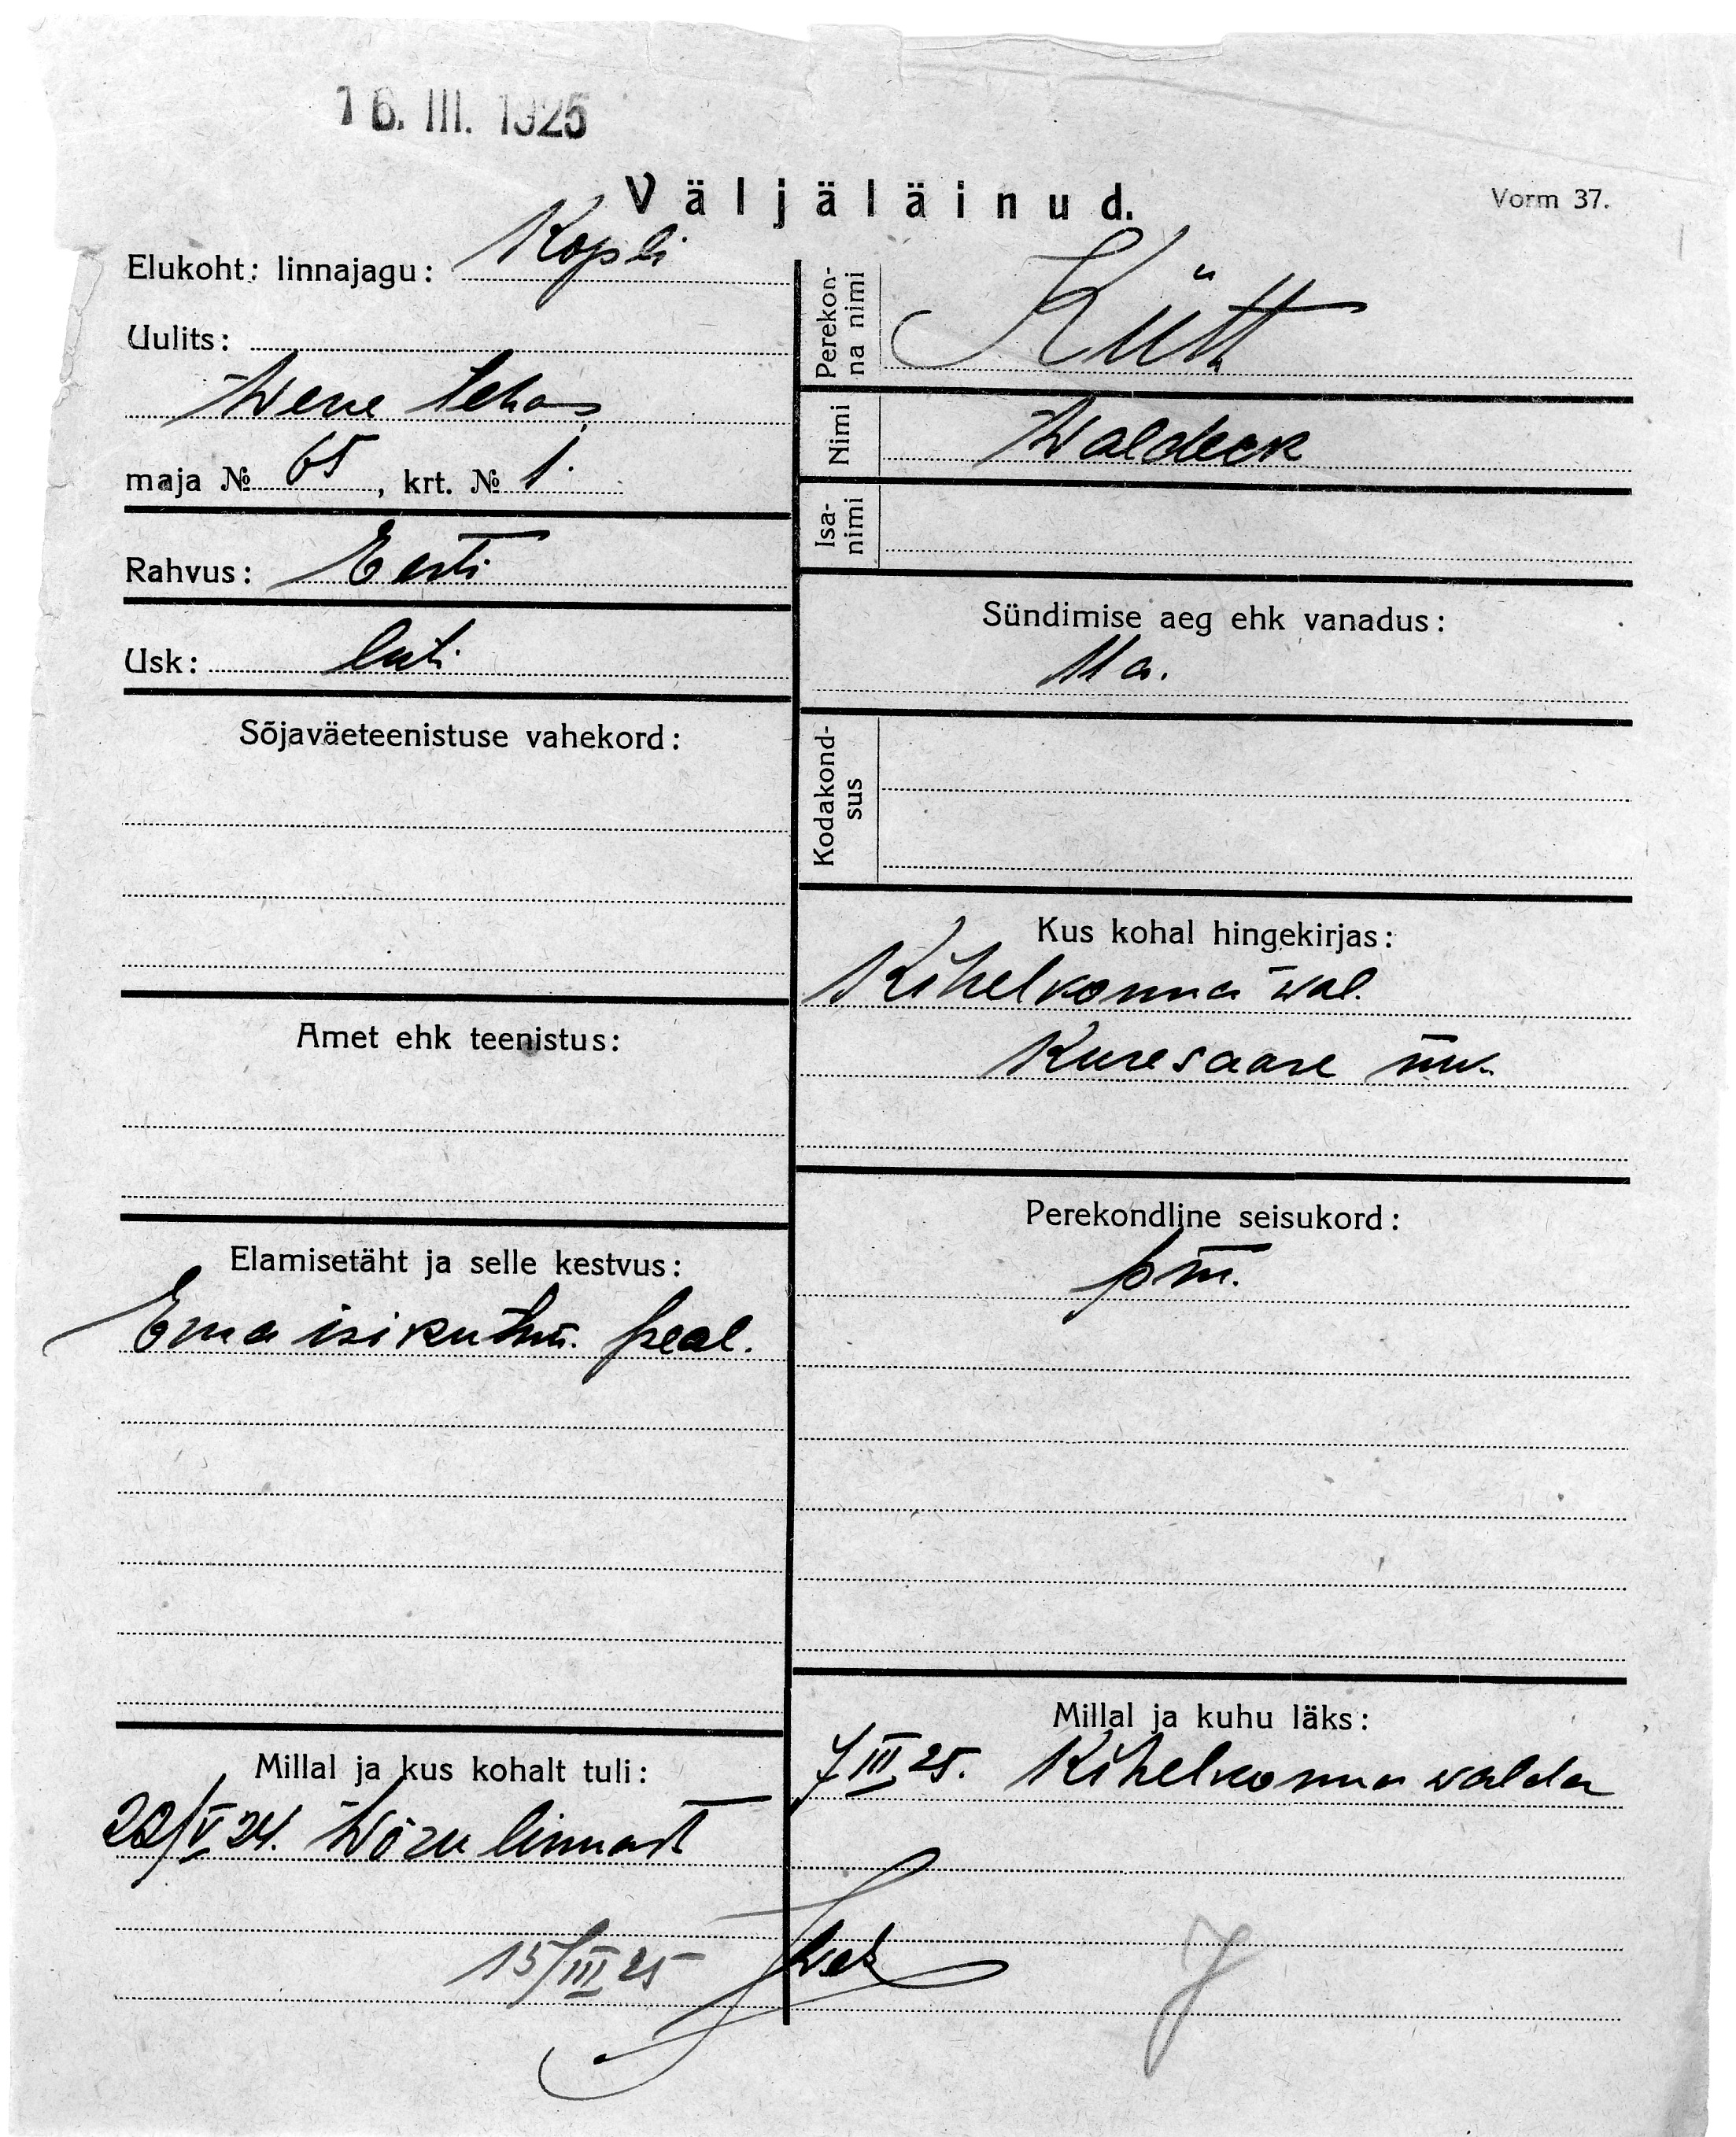 16. III. 1925
Väljäläinud.
Vorm 37.
Elukoht: linnajagu: Kopli
Uulits:
Wene tehas
maja № 65, krt. № 1.
Rahvus: Eesti
Usk: luti
Sõjaväeteenistuse vahekord:
Amet ehk teenistus:
Elamisetäht ja selle kestvus:
Ema isikutun. peal.
Millal ja kus kohalt tuli:
22/V 24. Wõru linnast
15/III 25
Perekon-
na nimi
Kütt
Nimi
Waldeck
Isa-
nimi
Sündimise aeg ehk vanadus:
11 a.
Kodakond-
sus
Kus kohal hingekirjas:
Kihelkonna wal.
Kuresaare mk.
Perekondline seisukord:
pm.
Millal ja kuhu läks:
7/III 25. Kihelkonna walda